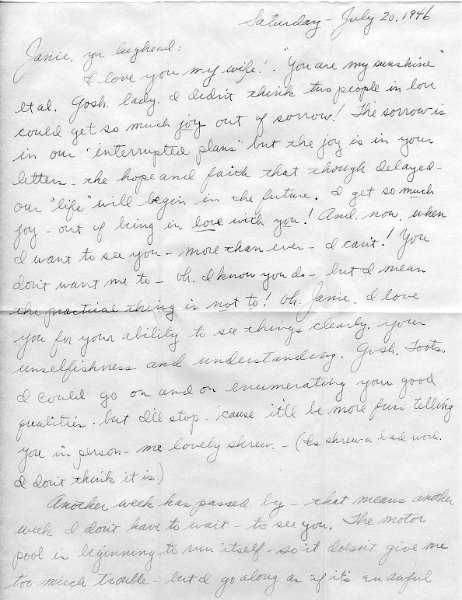 Saturday - July 20, 1946
Janie, ya lughead:
I love you my wife! "You are my sunshine"
et al. Gosh, lady, I didn't think two people in love
could get so much joy out of sorrow! The sorrow is
in our "interrupted plans" but the joy is in your
letters - the hope and faith that though delayed -
our "life" will begin in the future. I get so much
joy - out of being in love with you! And, now, when
I want to see you - more than ever - I can't! You
don't want me to - oh, I know you do - but I mean
the practical thing is not to! Oh, Janie, I love
you for your ability to see things clearly, your
unselfishness and understanding. Gosh, Toots,
I could go on and on enumerating your good
qualities - but I'll stop - 'cause it'll be more fun telling
you in person - me lovely shrew. - (Is shrew a bad
I don't think it is)
Another week has passed by - that means another
week I don't have to wait - to see you. The motor
pool is beginning to run itself - so it doesn't give me
too much trouble - but I go along as if it's an awful